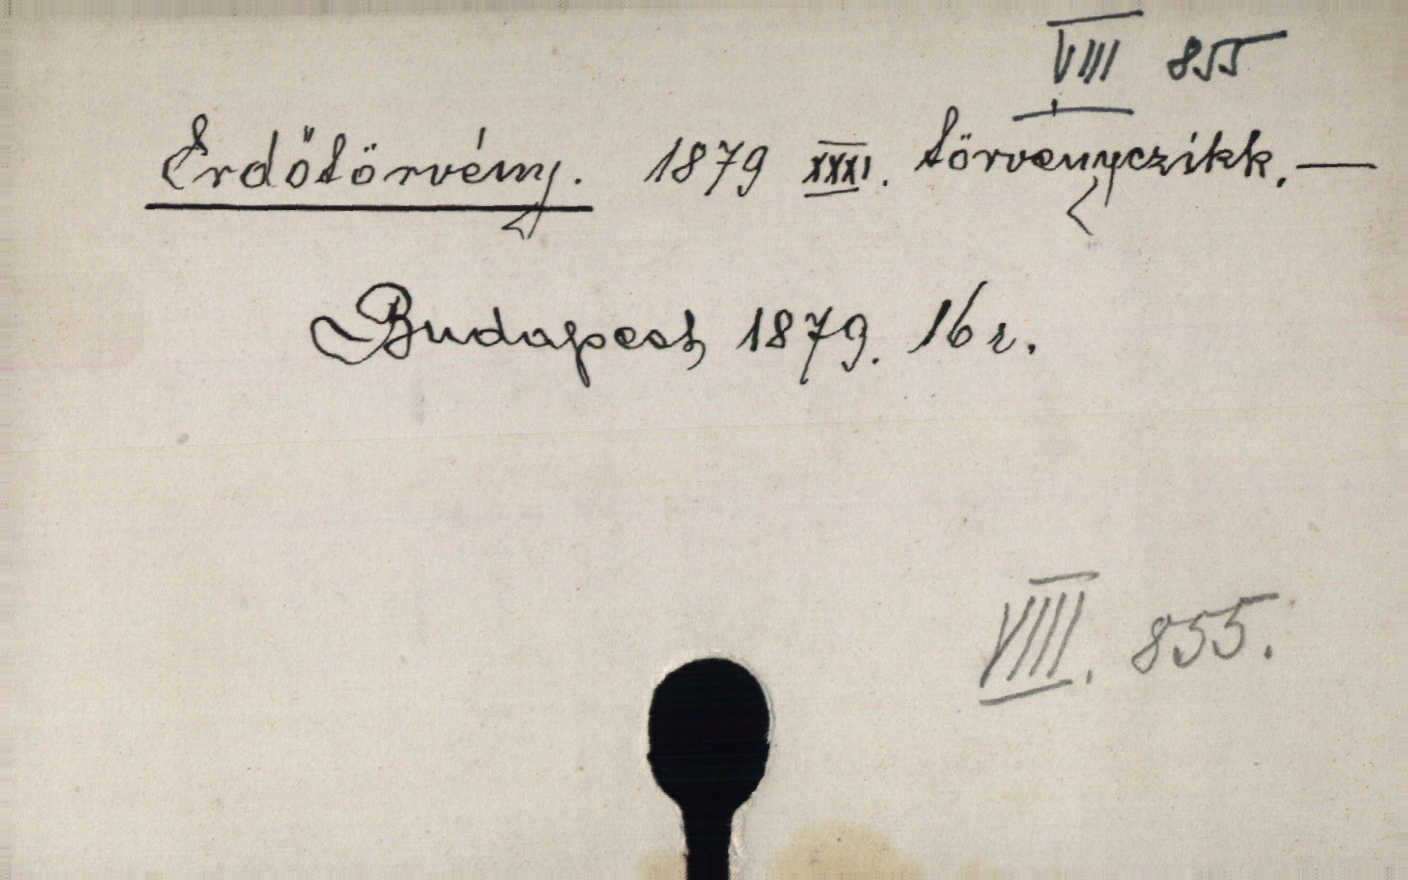 VIII 855
Erdőtörvény. 1879 XXXI. törvenyczikk. —
Budapest, 1879. 16 r.
VIII. 855.